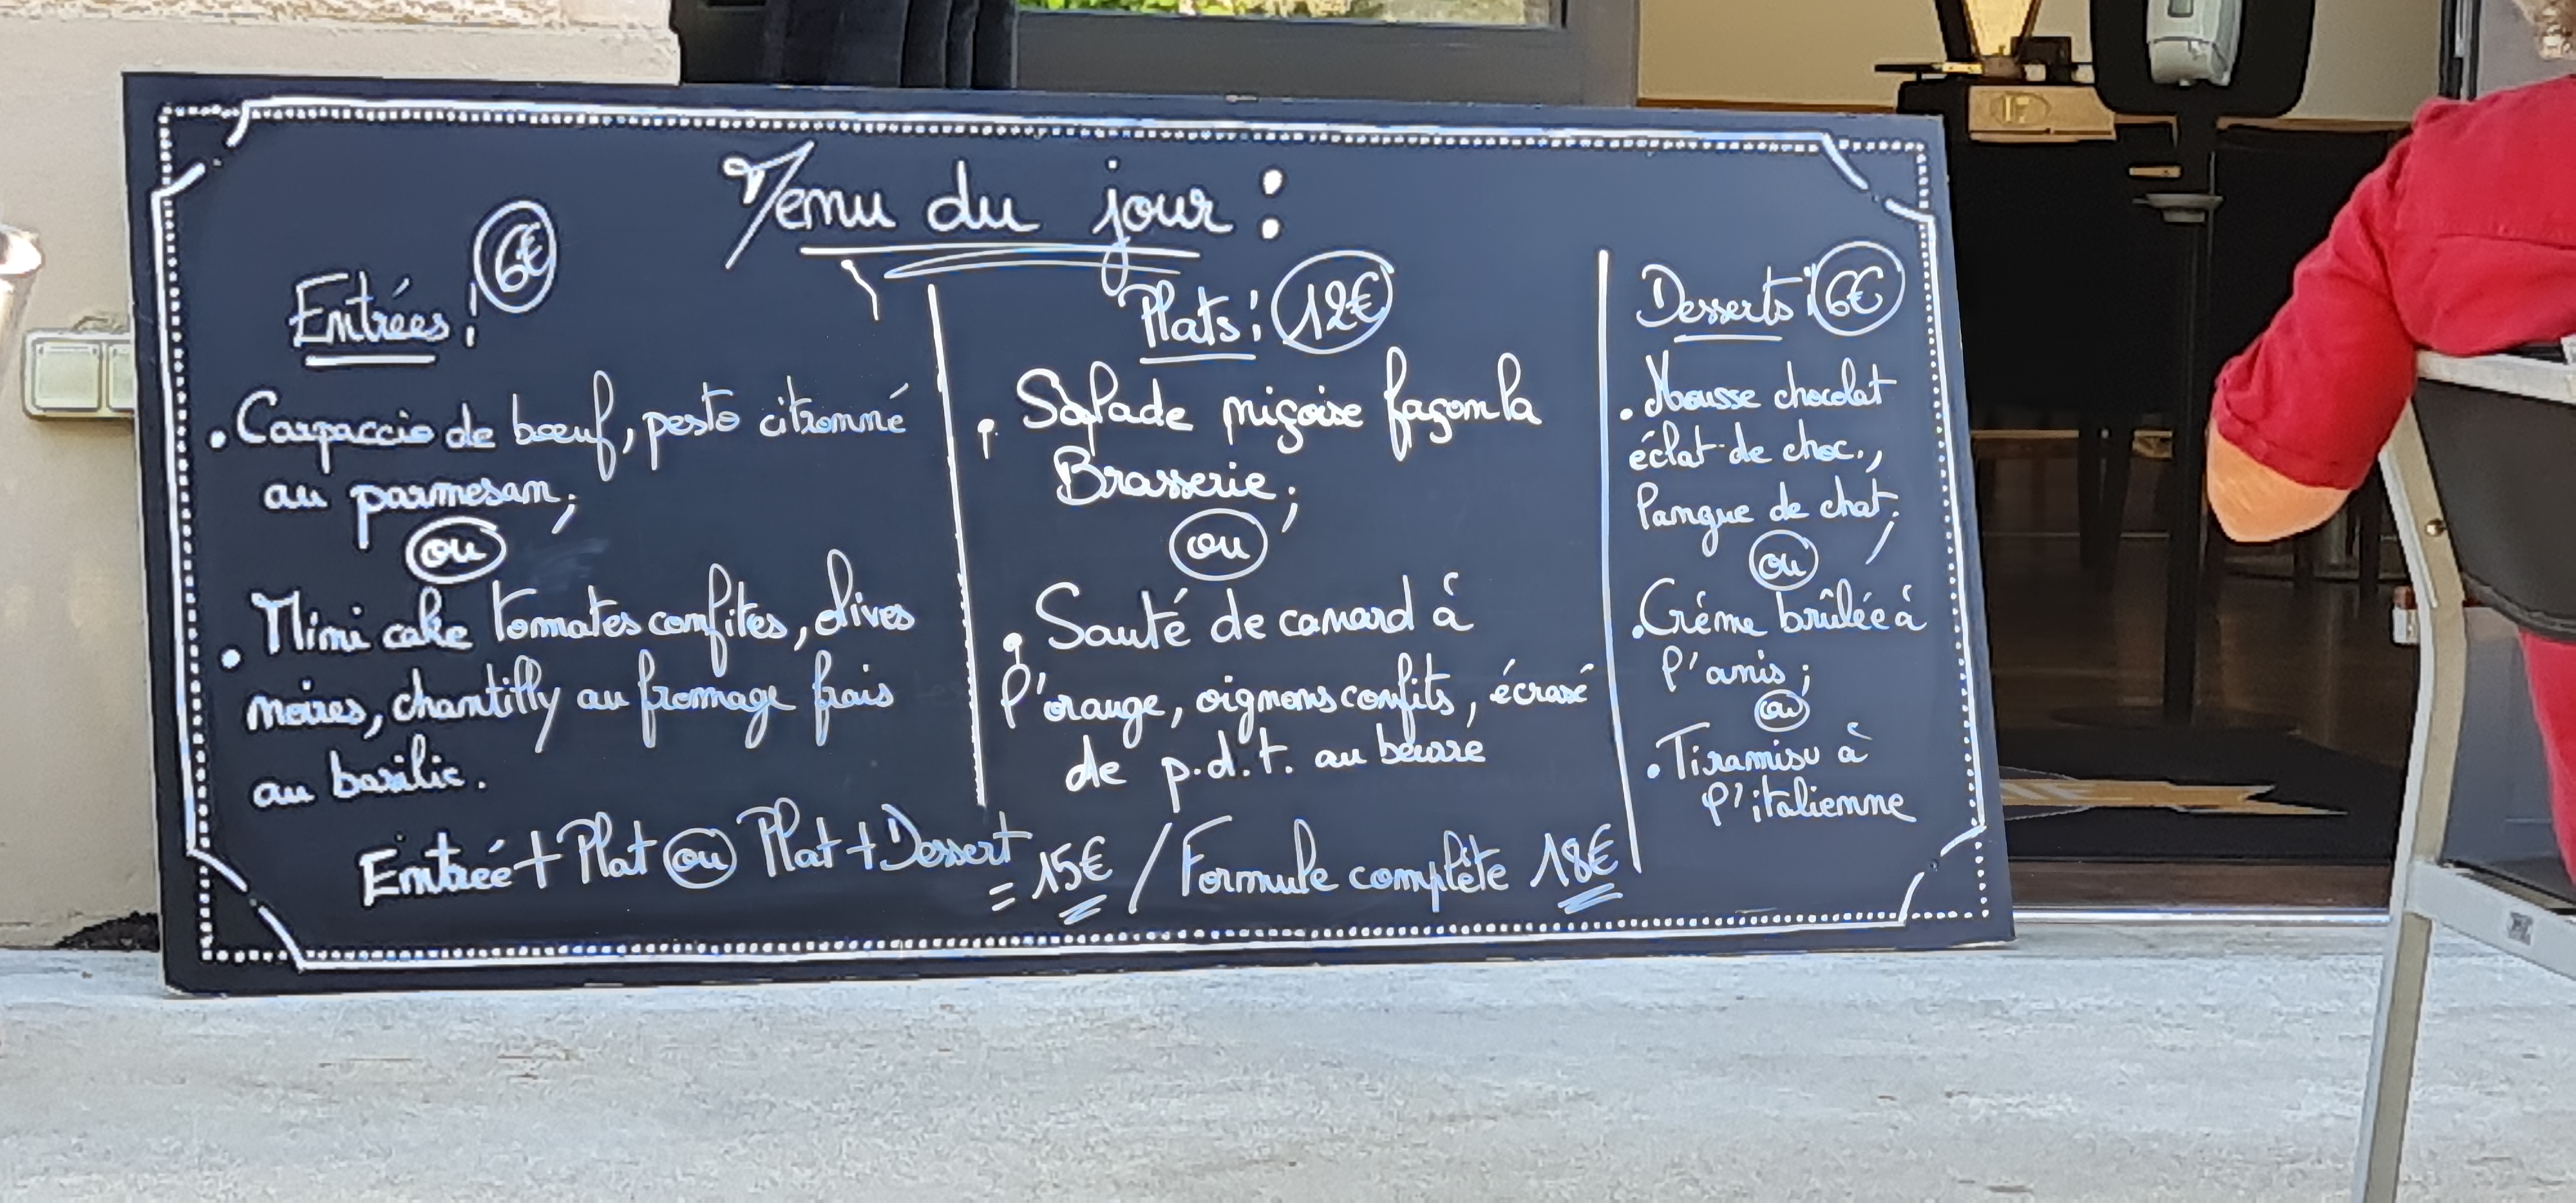 Menu du jour :
Entrées : 6€
. Carpaccio de bœuf, pesto citronné
au parmesan ;
ou
. Mini cake tomates confites, olives
noires, chantilly au fromage frais
au basilic.
Plats : 12€
. Salade niçoise façon la
Brasserie ;
ou
. Sauté de canard à
l'orange, oignons confits, écrasé
de p.d.t. au beurre
Desserts : 6€
. Mousse chocolat
éclat de choc.,
langue de chat ;
ou
. Crème brûlée à
l'anis ;
ou
. Tiramisu à
l'italienne
Entrée + Plat ou Plat + Dessert = 15€ / Formule complète 18€